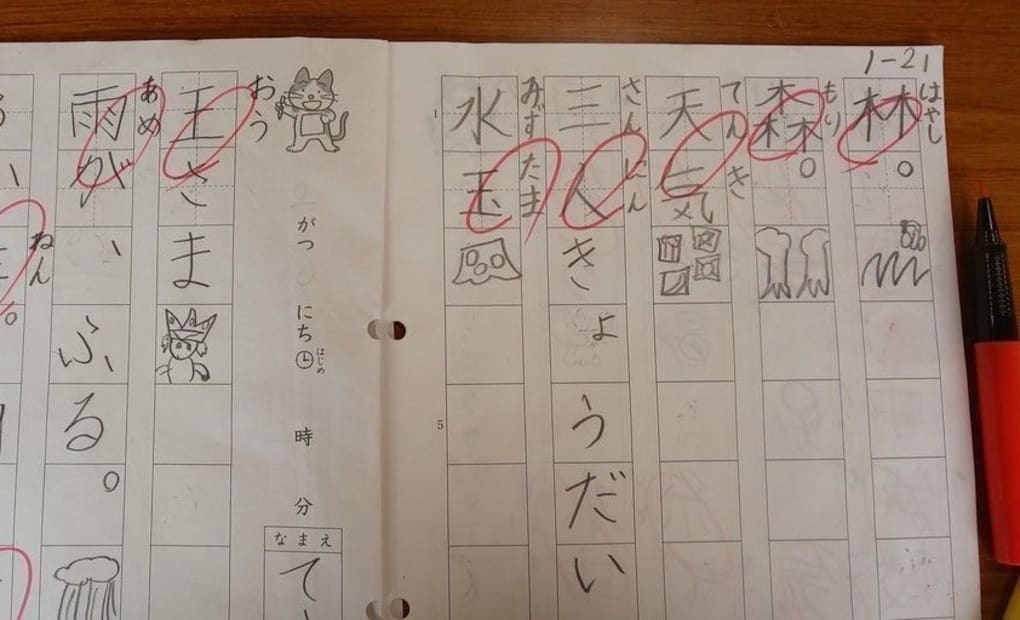 1-21
はやし
林。
もり
森。
てんき
天気
さんにん
三人きょうだい
みずたま
水玉
1
5
がつ にち はじめ 時 分
なまえ
て
おう
王さま
あめ
雨が、ふる。
ねん